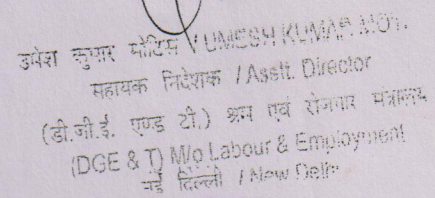 उमेश कुमार मोटिस / UMESH KUMAR MOTIS
सहायक निदेशक / Asstt. Director
(डी.जी.ई. एण्ड टी.) श्रम एवं रोजगार मंत्रालय
(DGE & T) M/o Labour & Employment
नई दिल्ली / New Delhi